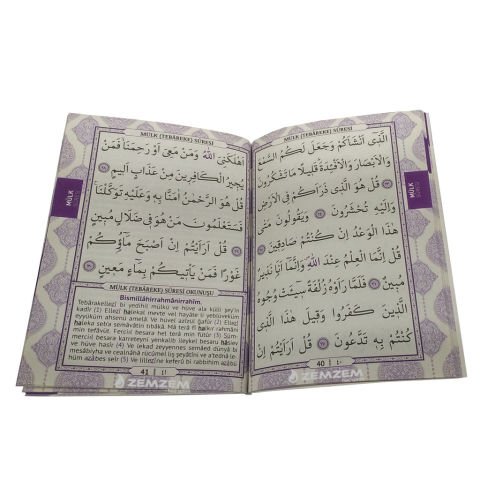 MÜLK (TEBÂREKE) SÛRESİ
الَّذ۪ٓي اَنْشَاَكُمْ وَجَعَلَ لَكُمُ السَّمْعَ
وَالْاَبْصَارَ وَالْاَفْـِٔدَةَ قَل۪يلًا مَا تَشْكُرُونَ
﴿٢٣﴾ قُلْ هُوَ الَّذ۪ي ذَرَاَكُمْ فِي الْاَرْضِ
وَاِلَيْهِ تُحْشَرُونَ ﴿٢٤﴾ وَيَقُولُونَ مَتٰى
هٰذَا الْوَعْدُ اِنْ كُنْتُمْ صَادِق۪ينَ ﴿٢٥﴾
قُلْ اِنَّمَا الْعِلْمُ عِنْدَ اللّٰهِ وَاِنَّمَٓا اَنَا نَذ۪يرٌ
مُب۪ينٌ ﴿٢٦﴾ فَلَمَّا رَاَوْهُ زُلْفَةً س۪ٓيـَٔتْ وُجُوهُ
الَّذ۪ينَ كَفَرُوا وَق۪يلَ هٰذَا الَّذ۪ي
كُنْتُمْ بِه۪ تَدَّعُونَ ﴿٢٧﴾ قُلْ اَرَاَيْتُمْ اِنْ
40 | ٤٠
MÜLK
ZEMZEM
MÜLK (TEBÂREKE) SÛRESİ
اَهْلَكَنِيَ اللّٰهُ وَمَنْ مَعِيَ اَوْ رَحِمَنَا فَمَنْ
يُج۪يرُ الْكَافِر۪ينَ مِنْ عَذَابٍ اَل۪يمٍ ﴿٢٨﴾
قُلْ هُوَ الرَّحْمٰنُ اٰمَنَّا بِه۪ وَعَلَيْهِ تَوَكَّلْنَا
فَسَتَعْلَمُونَ مَنْ هُوَ ف۪ي ضَلَالٍ مُب۪ينٍ
﴿٢٩﴾ قُلْ اَرَاَيْتُمْ اِنْ اَصْبَحَ مَٓاؤُ۬كُمْ
غَوْرًا فَمَنْ يَأْت۪يكُمْ بِمَٓاءٍ مَع۪ينٍ ﴿٣٠﴾
MÜLK (TEBÂREKE) SÛRESİ OKUNUŞU
Bismillâhirrahmânirrahîm.
Tebârakellezî bi yedihil mülkü ve hüve alâ külli şey'in
kadîr (1) Ellezî halekal mevte vel hayâte li yeblüveküm
eyyüküm ahsenü amelâ. Ve hüvel azîzül ğafûr (2) Ellezî
haleka seb'a semâvâtin tıbâkâ. Mâ terâ fî halkır rahmâni
min tefâvüt. Ferciıl besara hel terâ min fütûr (3) Süm-
merciıl besara karreteyni yenkalib ileykel besaru hâsien
ve hüve hasîr (4) Ve lekad zeyyennes semâed dünyâ bi
mesâbîyha ve cealnâhâ rucûmel liş şeyâtîni ve a'tednâ le-
hüm azâbes seîr (5) Ve lillezîne keferû bi rabbihim azâbü
41 | ٤١
MÜLK
ZEMZEM